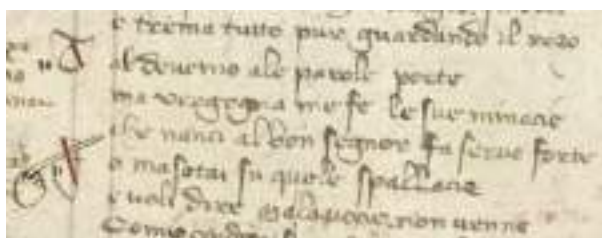 e trema tutto pur guardando il rezo
al devenio ale parole porte
ma vregogna me fe le sue minacie
che nanci al bon segnor fa servo forte
o masetai su quele spallacie
e voli dire non venne